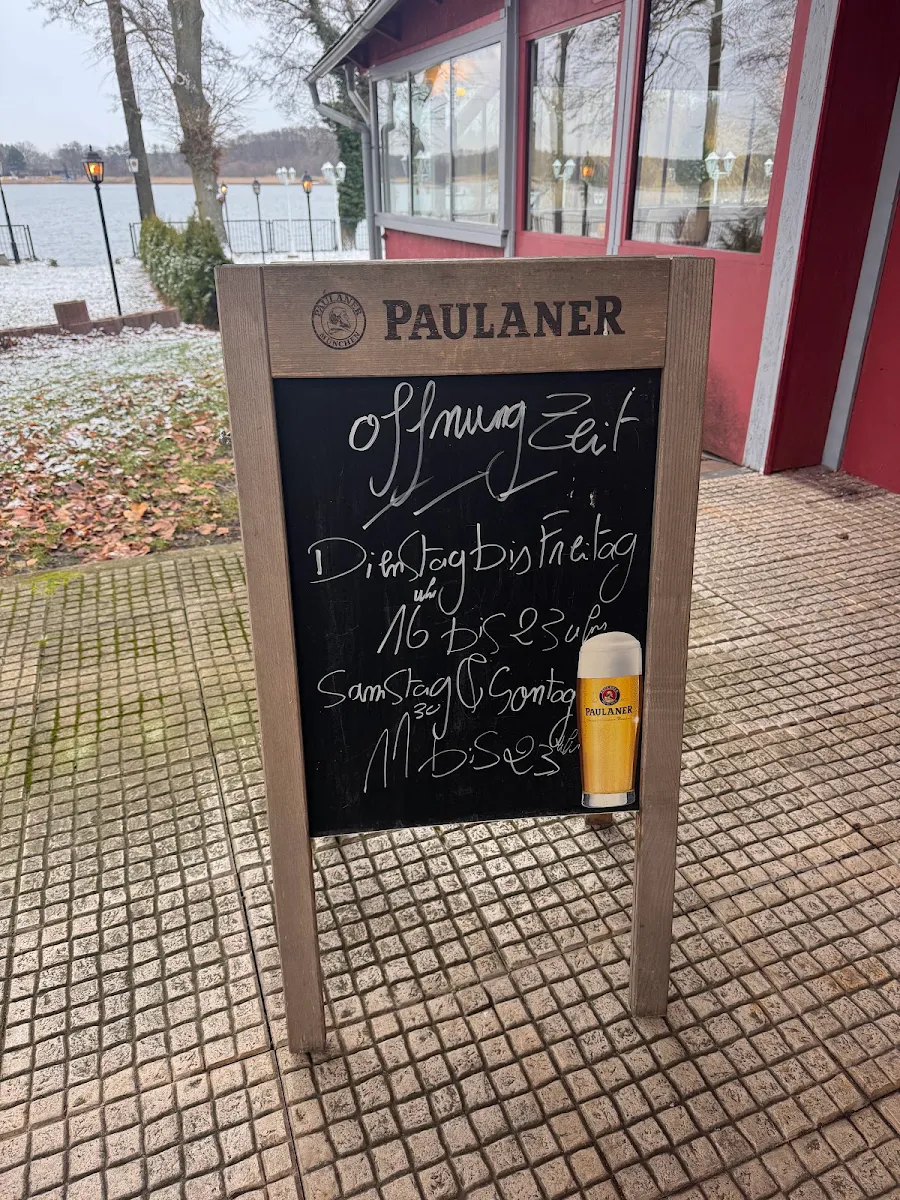 PAULANER MÜNCHEN
PAULANER
Öffnung Zeit
Dienstag bis Freitag
16 uhr bis 23 uhr
Samstag & Sontag
11 30 bis 23 uhr
PAULANER